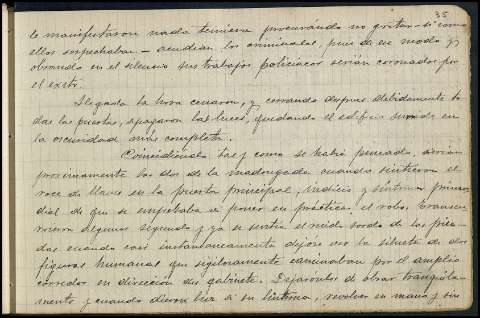 35
le manifestaron nada temiera procurándo no gritar – si como
ellos sospechaban – acudian los criminales, pués de ese modo y
obrando en el silencio sus trabajos policiacos serían coronados por
el exito.
Llegada la hora cenaron, y, cerrando despues debidamente to
das las puertas, apagaron las luces, quedando el edificio en
la oscuridad más completa.
Coincidiendo tal y como se había pensado, serían
proximamente las dos de la madrugada cuando sintieron el
roce de llaves en la puerta principal, indicio y síntoma primor
dial de que se empezaba a poner en práctica el robo. Transcu
rrieron algunos segundos y ya se sentía el ruido sordo de las pisa
das cuando casi instantaneamente dejóse ver la silueta de dos
figuras humanas que sigilosamente caminaban por el amplio
corredor en dirección al gabinete. Dejaronlos de obrar tranquila-
mente y cuando dieron luz a su linterna, revolver en mano y sin